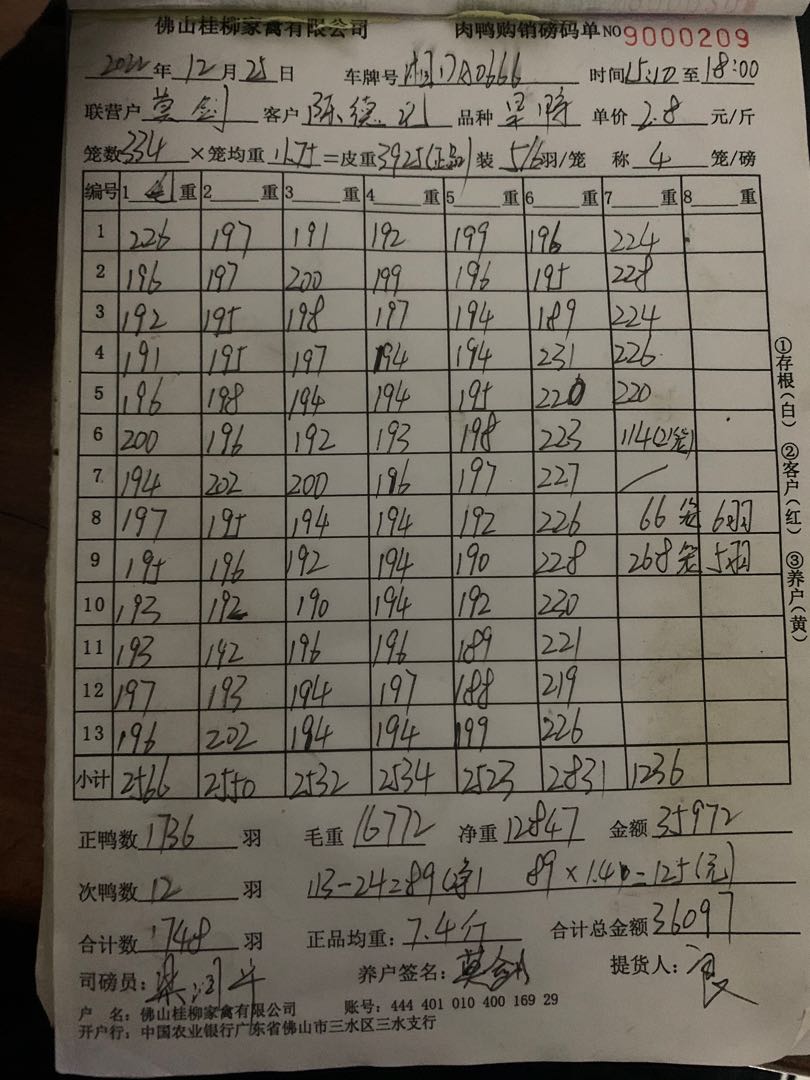 佛山桂柳家禽有限公司 肉鸭购销磅码单 NO 9000209
2022年12月25日 车牌号 时间15:10至18:00
联营户 莫剑 客户 陈德 品种 单价 2.8 元/斤
笼数 334 ×笼均重 11.75 =皮重 3925(正品) 装 5/6 羽/笼 称 4 笼/磅
编号 1 毛 重 2 重 3 重 4 重 5 重 6 重 7 重 8 重
1 226 197 191 192 199 196 224
2 196 197 200 199 196 195 228
3 192 195 198 197 194 189 224
4 191 195 197 194 194 231 226
5 196 198 194 194 195 220 220
6 200 196 192 193 198 223 114(2笼)
7 194 202 200 196 197 227 /
8 197 195 194 194 192 226 66笼 6羽
9 195 196 192 194 190 228 268笼 5羽
10 193 192 190 194 192 230
11 193 192 196 196 189 221
12 197 193 194 197 188 219
13 196 202 194 194 199 226
小计 2566 2550 2532 2534 2523 2831 1236
正鸭数 1736 羽 毛重 16772 净重 12847 金额 35972
次鸭数 12 羽 113-24=89(净) 89×1.40=125(元)
合计数 1748 羽 正品均重: 7.4斤 合计总金额 36097
司磅员: 养户签名: 莫剑 提货人:
户 名: 佛山桂柳家禽有限公司 账号: 444 401 010 400 169 29
开户行: 中国农业银行广东省佛山市三水区三水支行
①存根(白) ②客户(红) ③养户(黄)